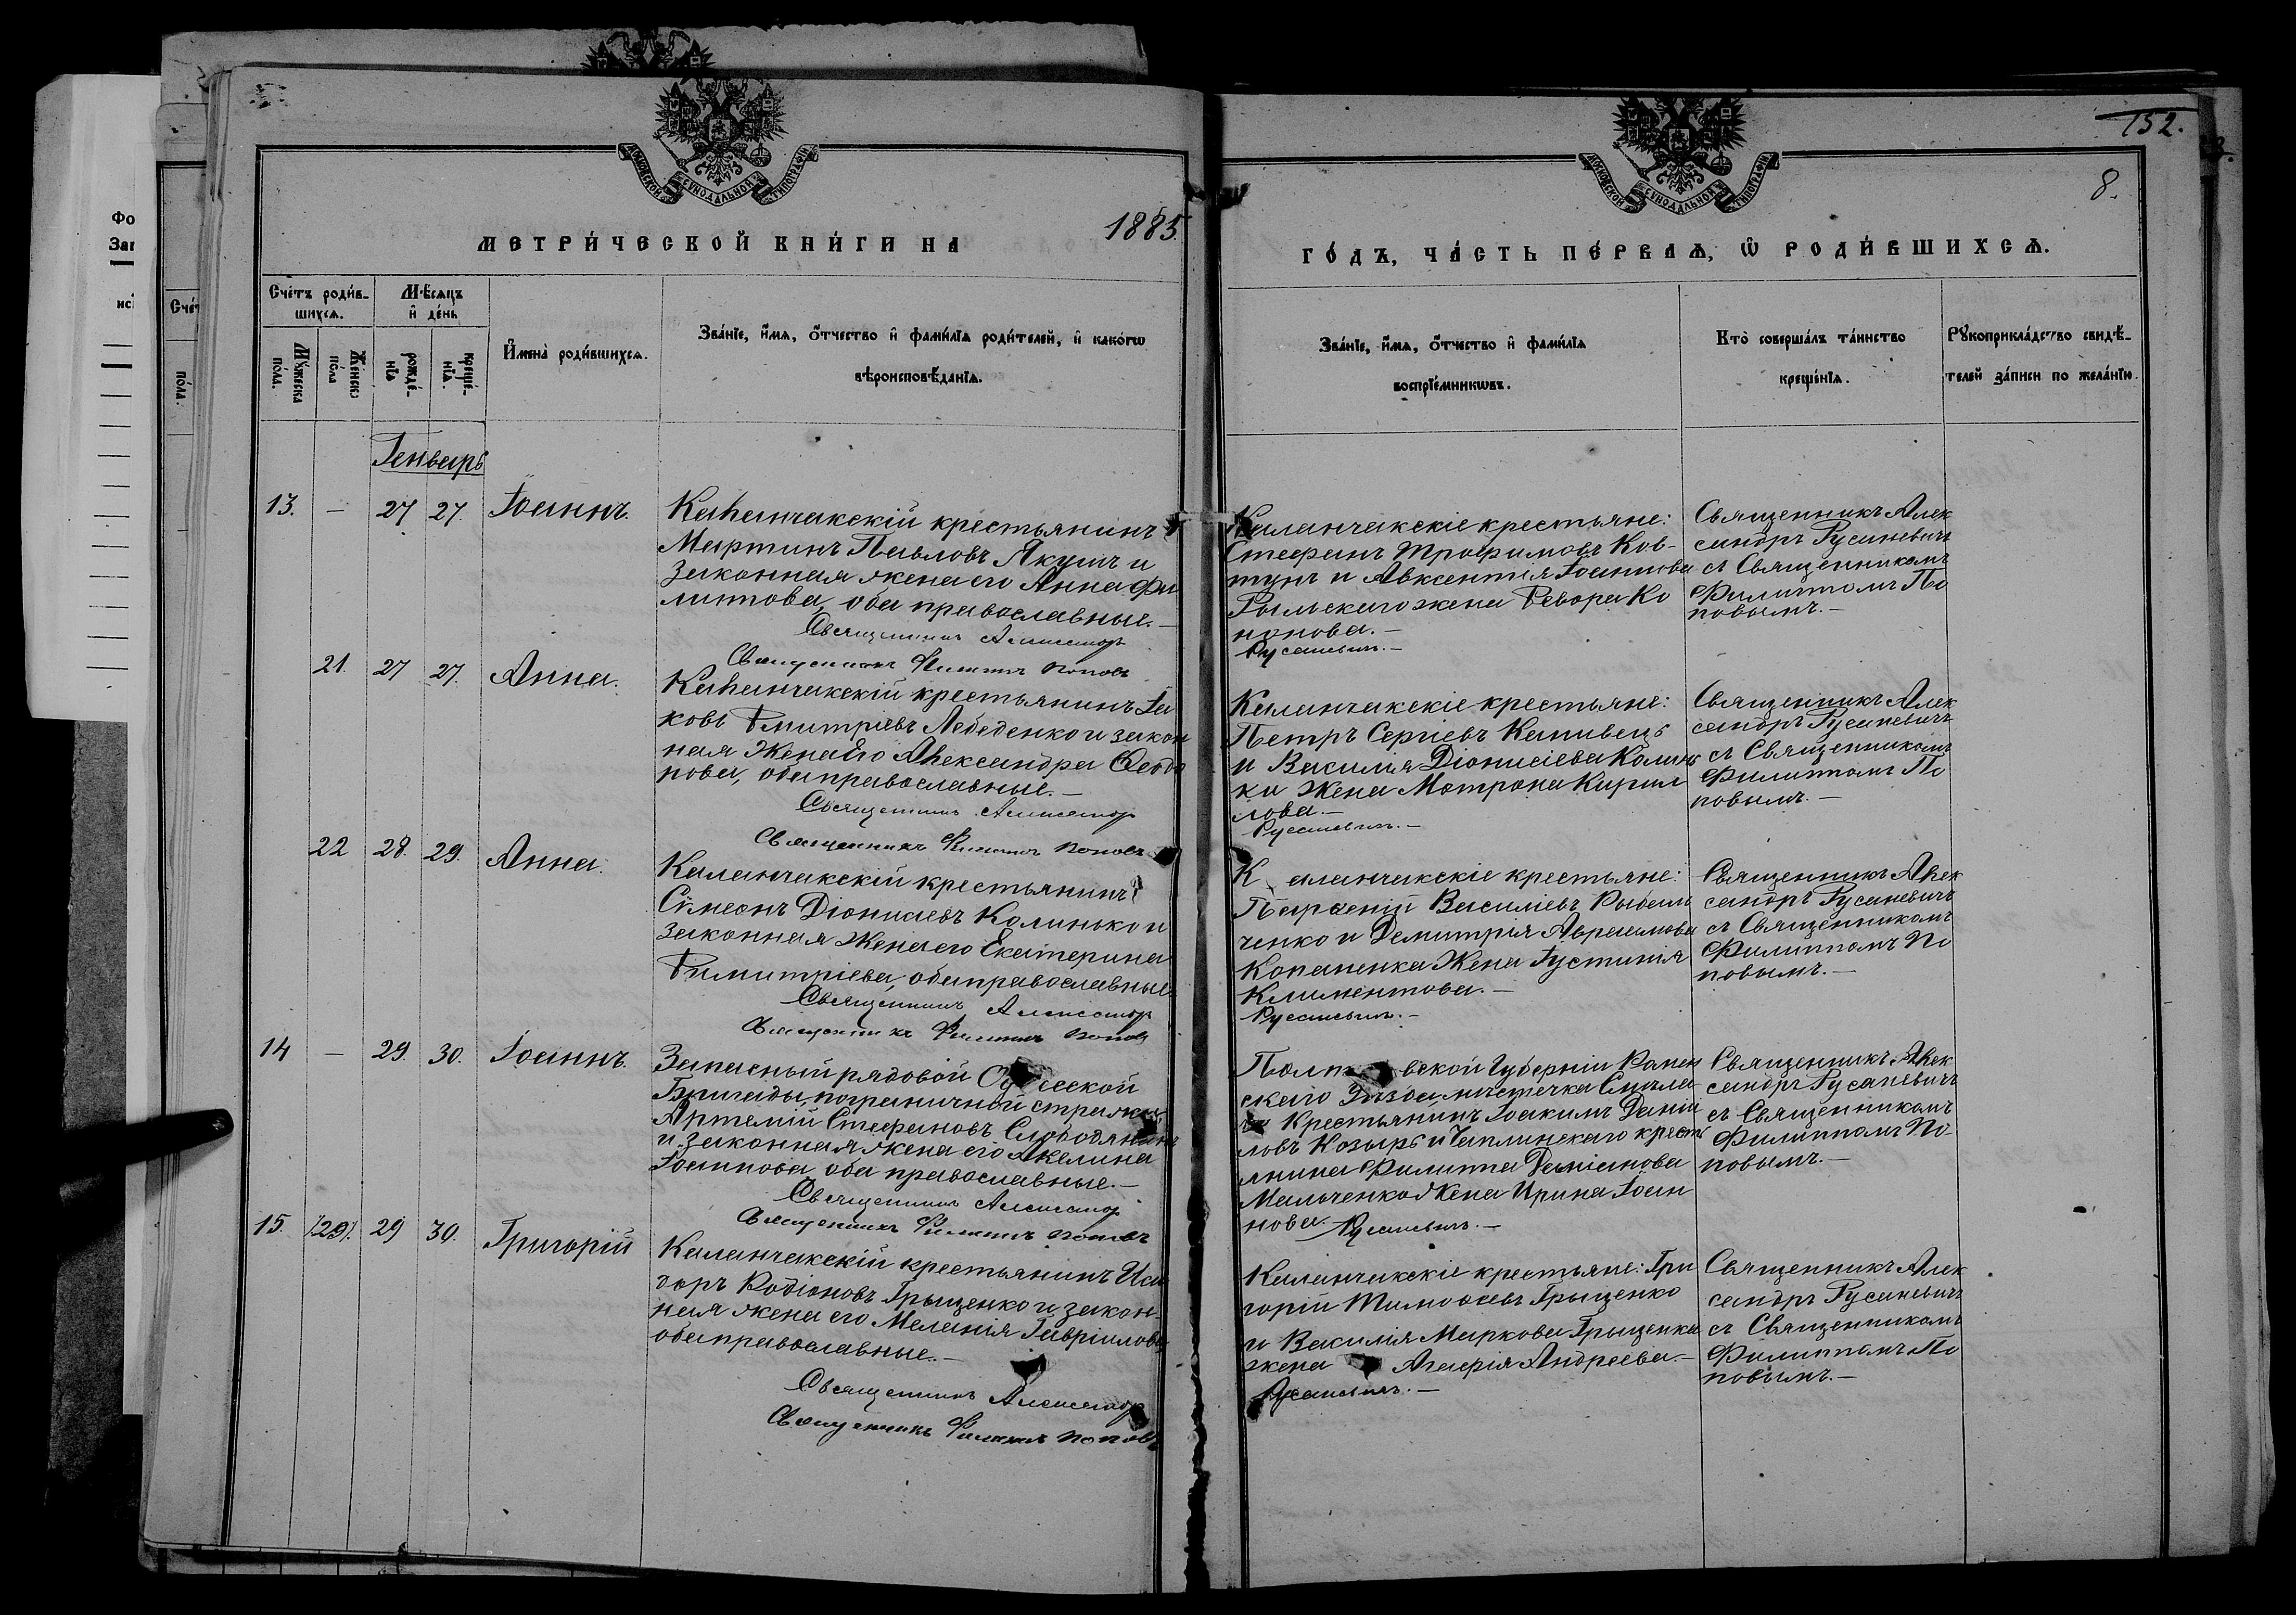 152.
8.
МОСКОВСКОЙ СѴНОДАЛЬНОЙ ТИПОГРАФІИ
МОСКОВСКОЙ СѴНОДАЛЬНОЙ ТИПОГРАФІИ
МЕТРИ́ЧЕСКОЙ КНИ́ГИ НА 1885.
ГО́ДЪ, ЧА́СТЬ ПЕ́РВАѦ, Ѿ РОДИ́ВШИХСѦ.
Сче́тъ роди́в-
шихсѧ.
Мꙋ́жеска
по́ла.
Же́нска
по́ла
Мѣ́сѧцъ
и҆ де́нь
рожде́-
нїѧ
креще́-
нїѧ.
И҆мена̀ роди́вшихсѧ.
Зва́нїе, и҆́мѧ, ѻ҆́тчество и҆ фами́лїѧ роди́телей, и҆ како́гѡ
вѣроисповѣ́данїѧ.
Зва́нїе, и҆́мѧ, ѻ҆́тчество и҆ фами́лїѧ
воспрїе́мникѡвъ.
Кто̀ соверша́лъ та́инство
креще́нїѧ.
Рꙋкоприкла́дство свидѣ́-
телей за́писи по жела́нїю.
Генварь
13. — 27 27. Іоаннъ.
Каланчакскій крестьянинъ
Мартинъ Павловъ Якушъ и
законная жена его Анна Фи
липпова, оба православные.—
Священникъ Александръ
Священникъ Филиппъ Поповъ
Каланчакскіе крестьяне:
Стефанъ Трофимовъ Ков-
тунъ и Авксентія Іоаннова
Рыльскаго жена Ѳевора Ко
нонова.—
Русаневичъ.—
Священникъ Алек
сандръ Русаневичъ
съ Священникомъ
Филиппомъ По
повымъ.—
21. 27 27. Анна.
Каланчакскій крестьянинъ Іа
ковъ Димитріевъ Лебеденко и закон
ная жена его Александра Ѳедо
рова, оба православные.—
Священникъ Александръ
Священникъ Филиппъ Поповъ
Каланчакскіе крестьяне:
Петръ Сергіевъ Канивецъ
и Василія Діонисіева Калинь
ка жена Матрона Кирил
лова.—
Русаневичъ.—
Священникъ Алек
сандръ Русаневичъ
съ Священникомъ
Филиппомъ По
повымъ.—
22 28. 29. Анна.
Каланчакскій крестьянинъ
Сѵмеонъ Діонисіевъ Калинько и
законная жена его Екатерина
Димитріева, оба православные.
Священникъ Александръ
Священникъ Филиппъ Поповъ
Каланчакскіе крестьяне:
Парѳеній Василіевъ Рыбаль
ченко и Демитрія Авраамова
Копаненка жена Іустинія
Климентова.—
Русаневичъ.—
Священникъ Алек
сандръ Русаневичъ
съ Священникомъ
Филиппомъ По
повымъ.—
14 — 29. 30. Іоаннъ.
Запасный рядовой Одесской
Бригады, пограничной стражи
Артемій Стефановъ Слободяникъ
и законная жена его Акелина
Іоаннова, оба православные.—
Священникъ Александръ
Священникъ Филиппъ Поповъ
Полтавской Губерніи
скаго Уѣзда мѣстечка
Крестьянинъ Іоакимъ Даніи
ловъ Козырь и Чаплинскаго кресть
янина Филиппа Даміанова
Мальченко жена Ирина Іоан
нова.— Русаневичъ.—
Священникъ Алек
сандръ Русаневичъ
съ Священникомъ
Филиппомъ По-
повымъ.—
15. 29 30. Григорій
Каланчакскій крестьянинъ Иси
доръ Родіоновъ Грыценко и закон-
ная жена его Меланія Гавріилова
оба православные.—
Священникъ Александръ
Священникъ Филиппъ Поповъ
Каланчакскіе крестьяне: Гри
горій Тимоѳеевъ Грыценко
и Василія Маркова Грыценка
жена Агафія Андреева.—
Русаневичъ.—
Священникъ Алек
сандръ Русаневичъ
съ Священникомъ
Филиппомъ По
повымъ.—